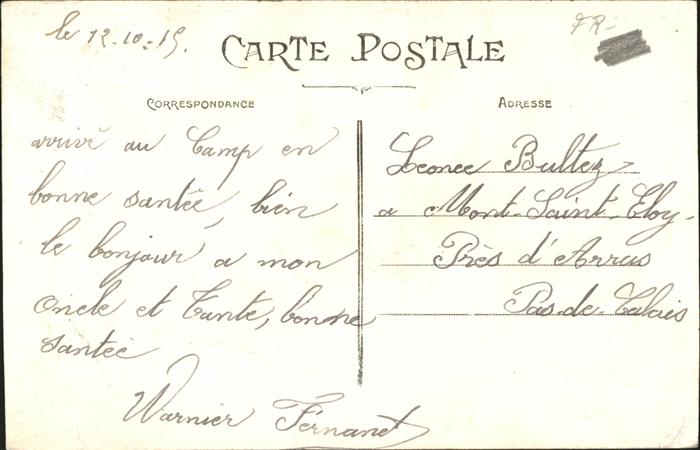 le 12-10-15.
FR-
CARTE POSTALE
CORRESPONDANCE
arrivé au Camp en
bonne santée, bien
le bonjour a mon
Oncle et Tante, bonne
santée
Warnier Fernand
ADRESSE
Leonce Bultez
a Mont-Saint-Eloy-
Près d'Arras
Pas-de-Calais